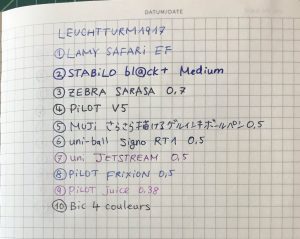 DATUM/DATE
LEUCHTTURM1917
① LAMY SAFARI EF
② STABILO bl@ck+ Medium
③ ZEBRA SARASA 0,7
④ PILOT V5
⑤ MUJI さらさら描けるゲルインキボールペン 0,5
⑥ uni-ball Signo RT1 0,5
⑦ uni JETSTREAM 0,5
⑧ PILOT FRIXION 0,5
⑨ PILOT juice 0.38
⑩ Bic 4 couleurs